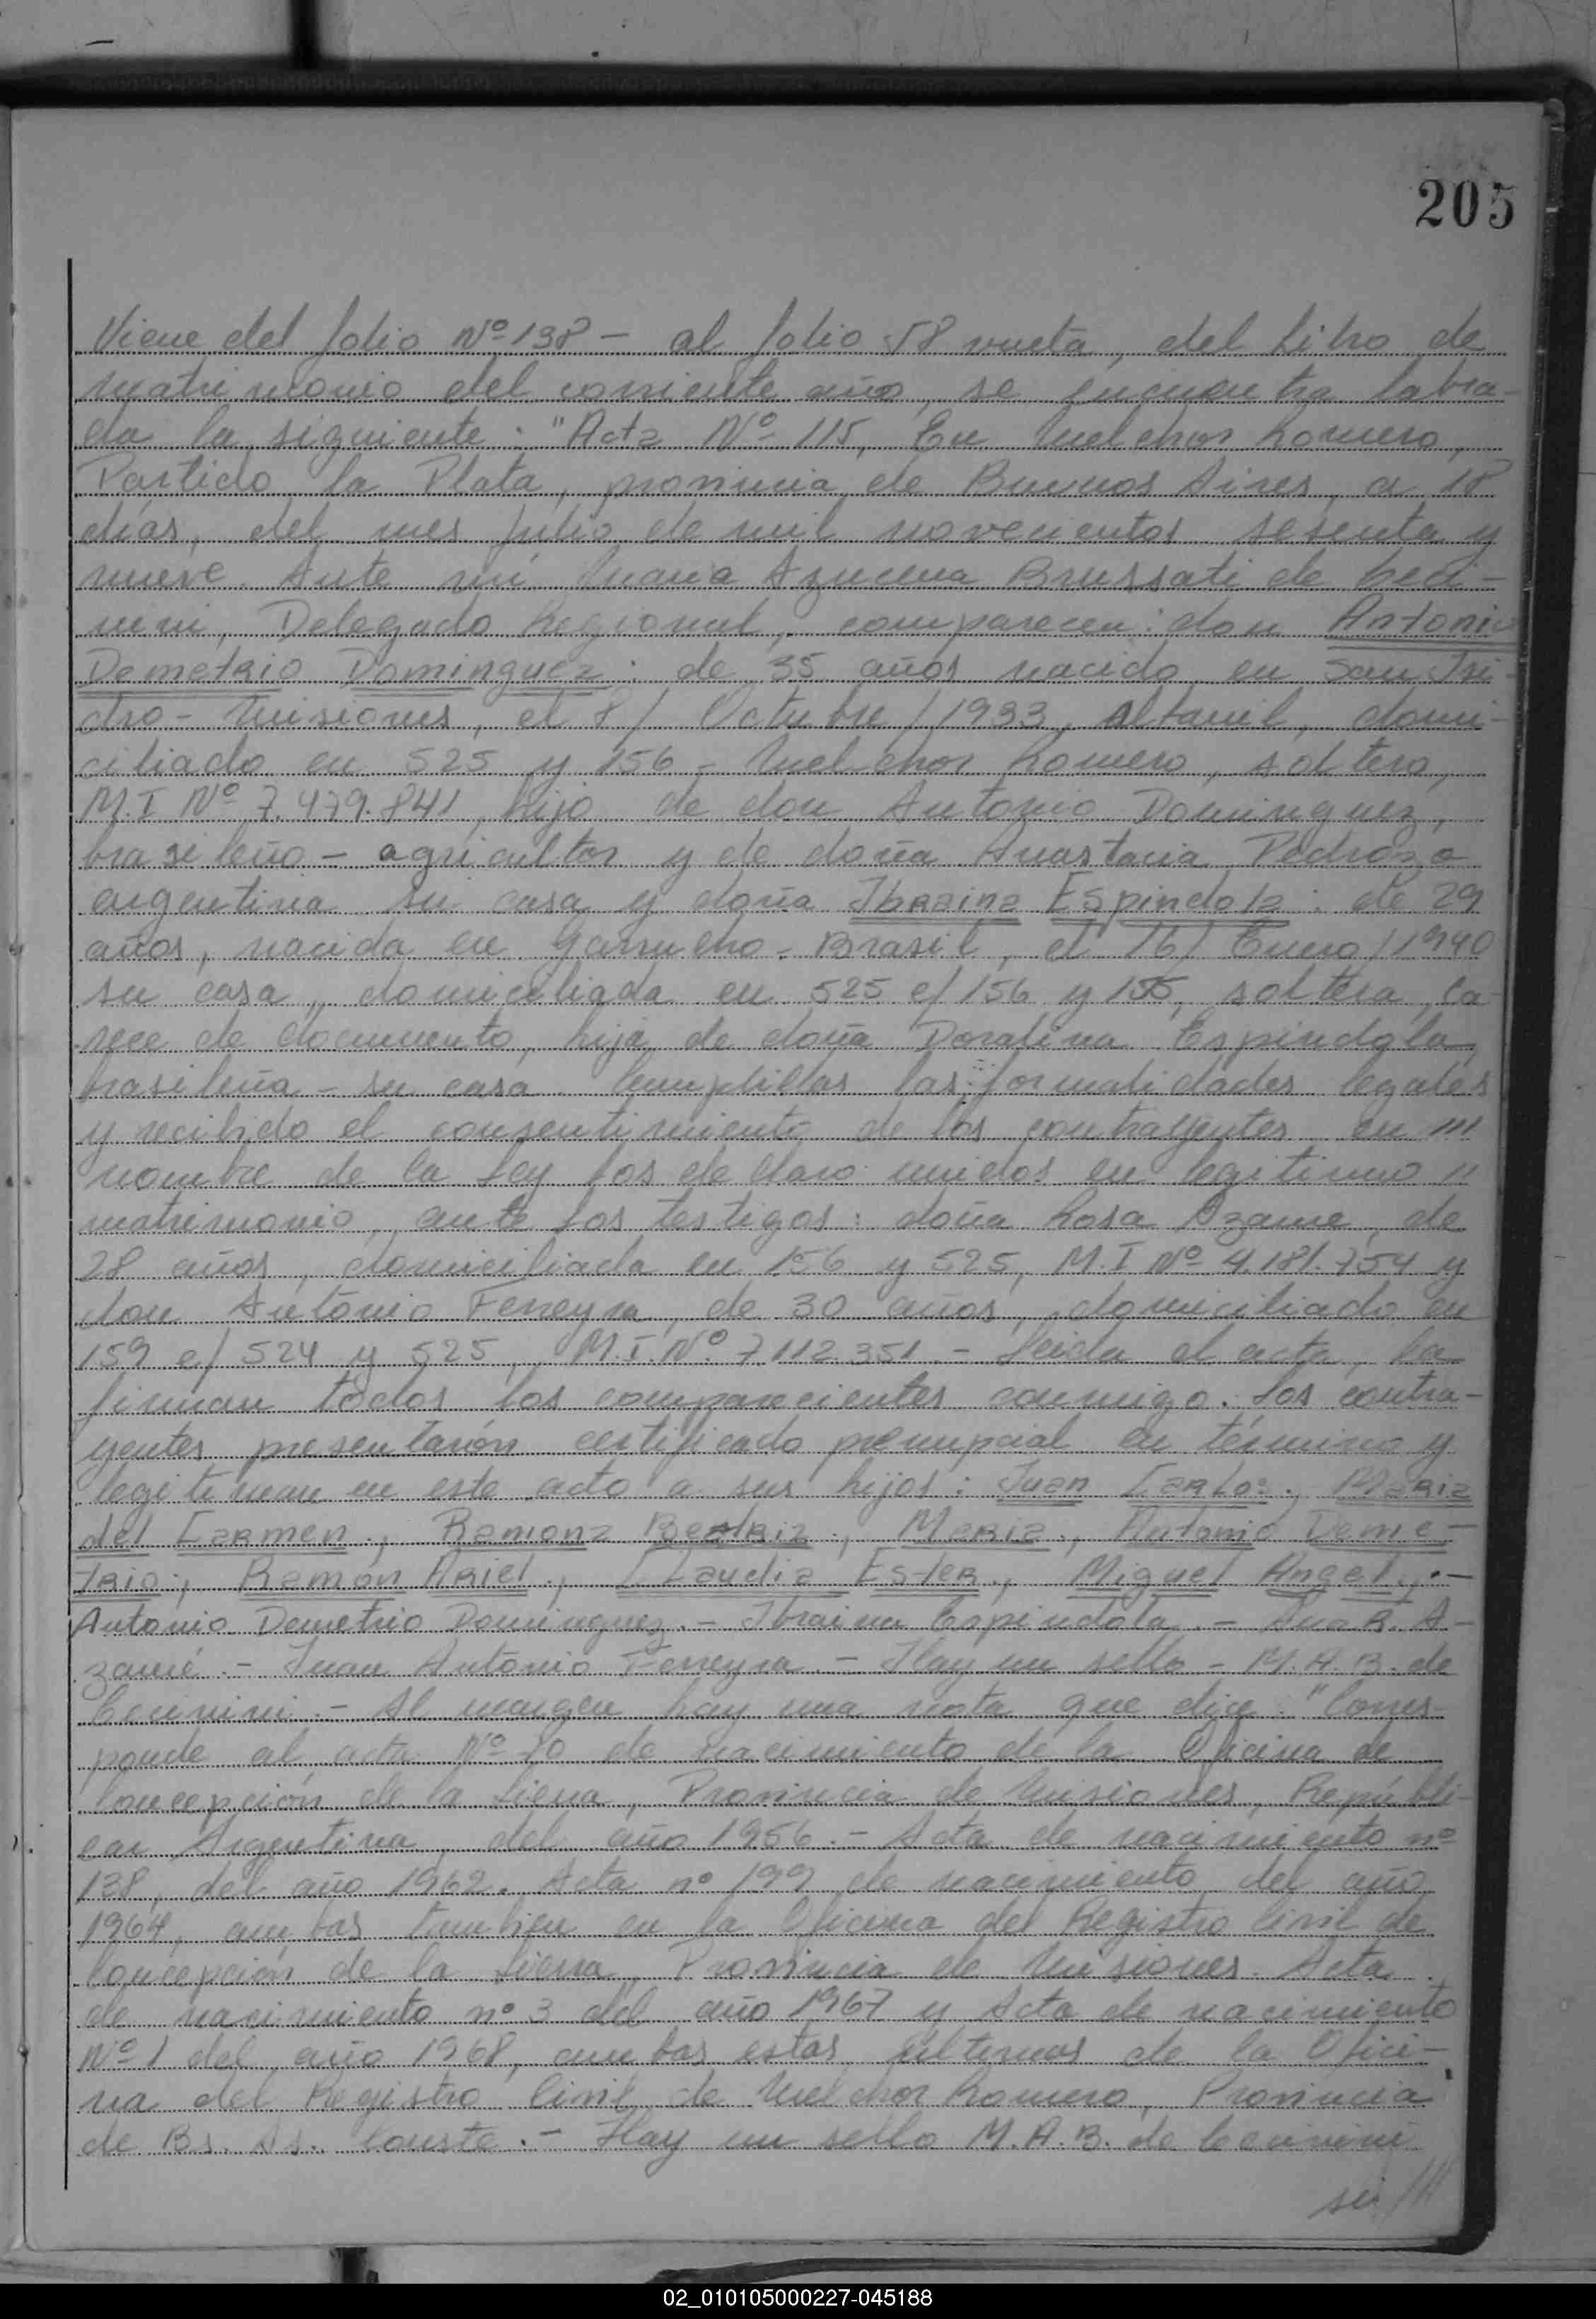 205
Viene del folio Nº 138 - al folio 58 vuelta, del Libro de
matrimonio del corriente año, se encuentra labra-
da la siguiente: "Acta Nº 115, En Melchor Romero,
Partido La Plata, provincia de Buenos Aires, a 18
días, del mes Julio de mil novecientos sesenta y
nueve. Ante mí Azucena Brussati de Ceci-
nini, Delegado Regional, comparecen: don Antonio
Demetrio Dominguez: de 35 años nacido en San Isi-
dro - Misiones, el 8/ Octubre / 1933, Albañil, domi-
ciliado en 525 y 156 - Melchor Romero, soltero,
M.I Nº 7.479.841, hijo de don Antonio Dominguez,
brasileño - agricultor y de doña Anastacia Pedrozo
argentina su casa y doña Ibraina Espindola: de 29
años, nacida en Garrucho - Brasil, el 16/ Enero / 1940
su casa, domiciliada en 525 e/ 156 y 155, soltera, ca-
rece de documento, hija de doña Doralina Espindola,
brasileña - su casa. Cumplidas las formalidades legales
y recibido el consentimiento de los contrayentes en ///
nombre de la Ley los declaro unidos en legitimo //
matrimonio, ante los testigos: doña Rosa Azame, de
28 años, domiciliada en 156 y 525, M.I Nº 4.181.754 y
don Antonio Ferreyra, de 30 años, domiciliado en
159 e/ 524 y 525, M.I. Nº. 7.112.351. - Leida el acta, la
firman todos los comparecientes conmigo. Los contra-
yentes presentarón certificado prenupcial en término y
legitiman en este acto a sus hijos: Juan Carlos., Maria
del Carmen., Ramona Beatriz., Maria., Antonio Deme-
trio., Ramón Ariel., Claudia Ester., Miguel Angel.,.-
Antonio Demetrio Dominguez. - Ibraina Espindola. - Ana R. A-
zamé. - Juan Antonio Ferreyra. - Hay un sello - M.A.B. de
Cecinini. - Al margen hay una nota que dice: "Corres-
ponde al acta Nº 70 de nacimiento de la Oficina de
Concepción de la Sierra, Provincia de Misiones, Repúbli-
ca Argentina, del año 1956. - Acta de nacimiento nº
138, del año 1962. Acta nº 199 de nacimiento del año
1964, ambas tambien en la Oficina del Registro Civil de
Concepción de la Sierra, Provincia de Misiones. Acta
de nacimiento nº 3 del año 1967 y Acta de nacimiento
Nº 1 del año 1968, ambas estas últimas de la Ofici-
na del Registro Civil de Melchor Romero, Provincia
de Bs. As.. Conste. - Hay un sello M.A.B. de Cecinini
02_010105000227-045188